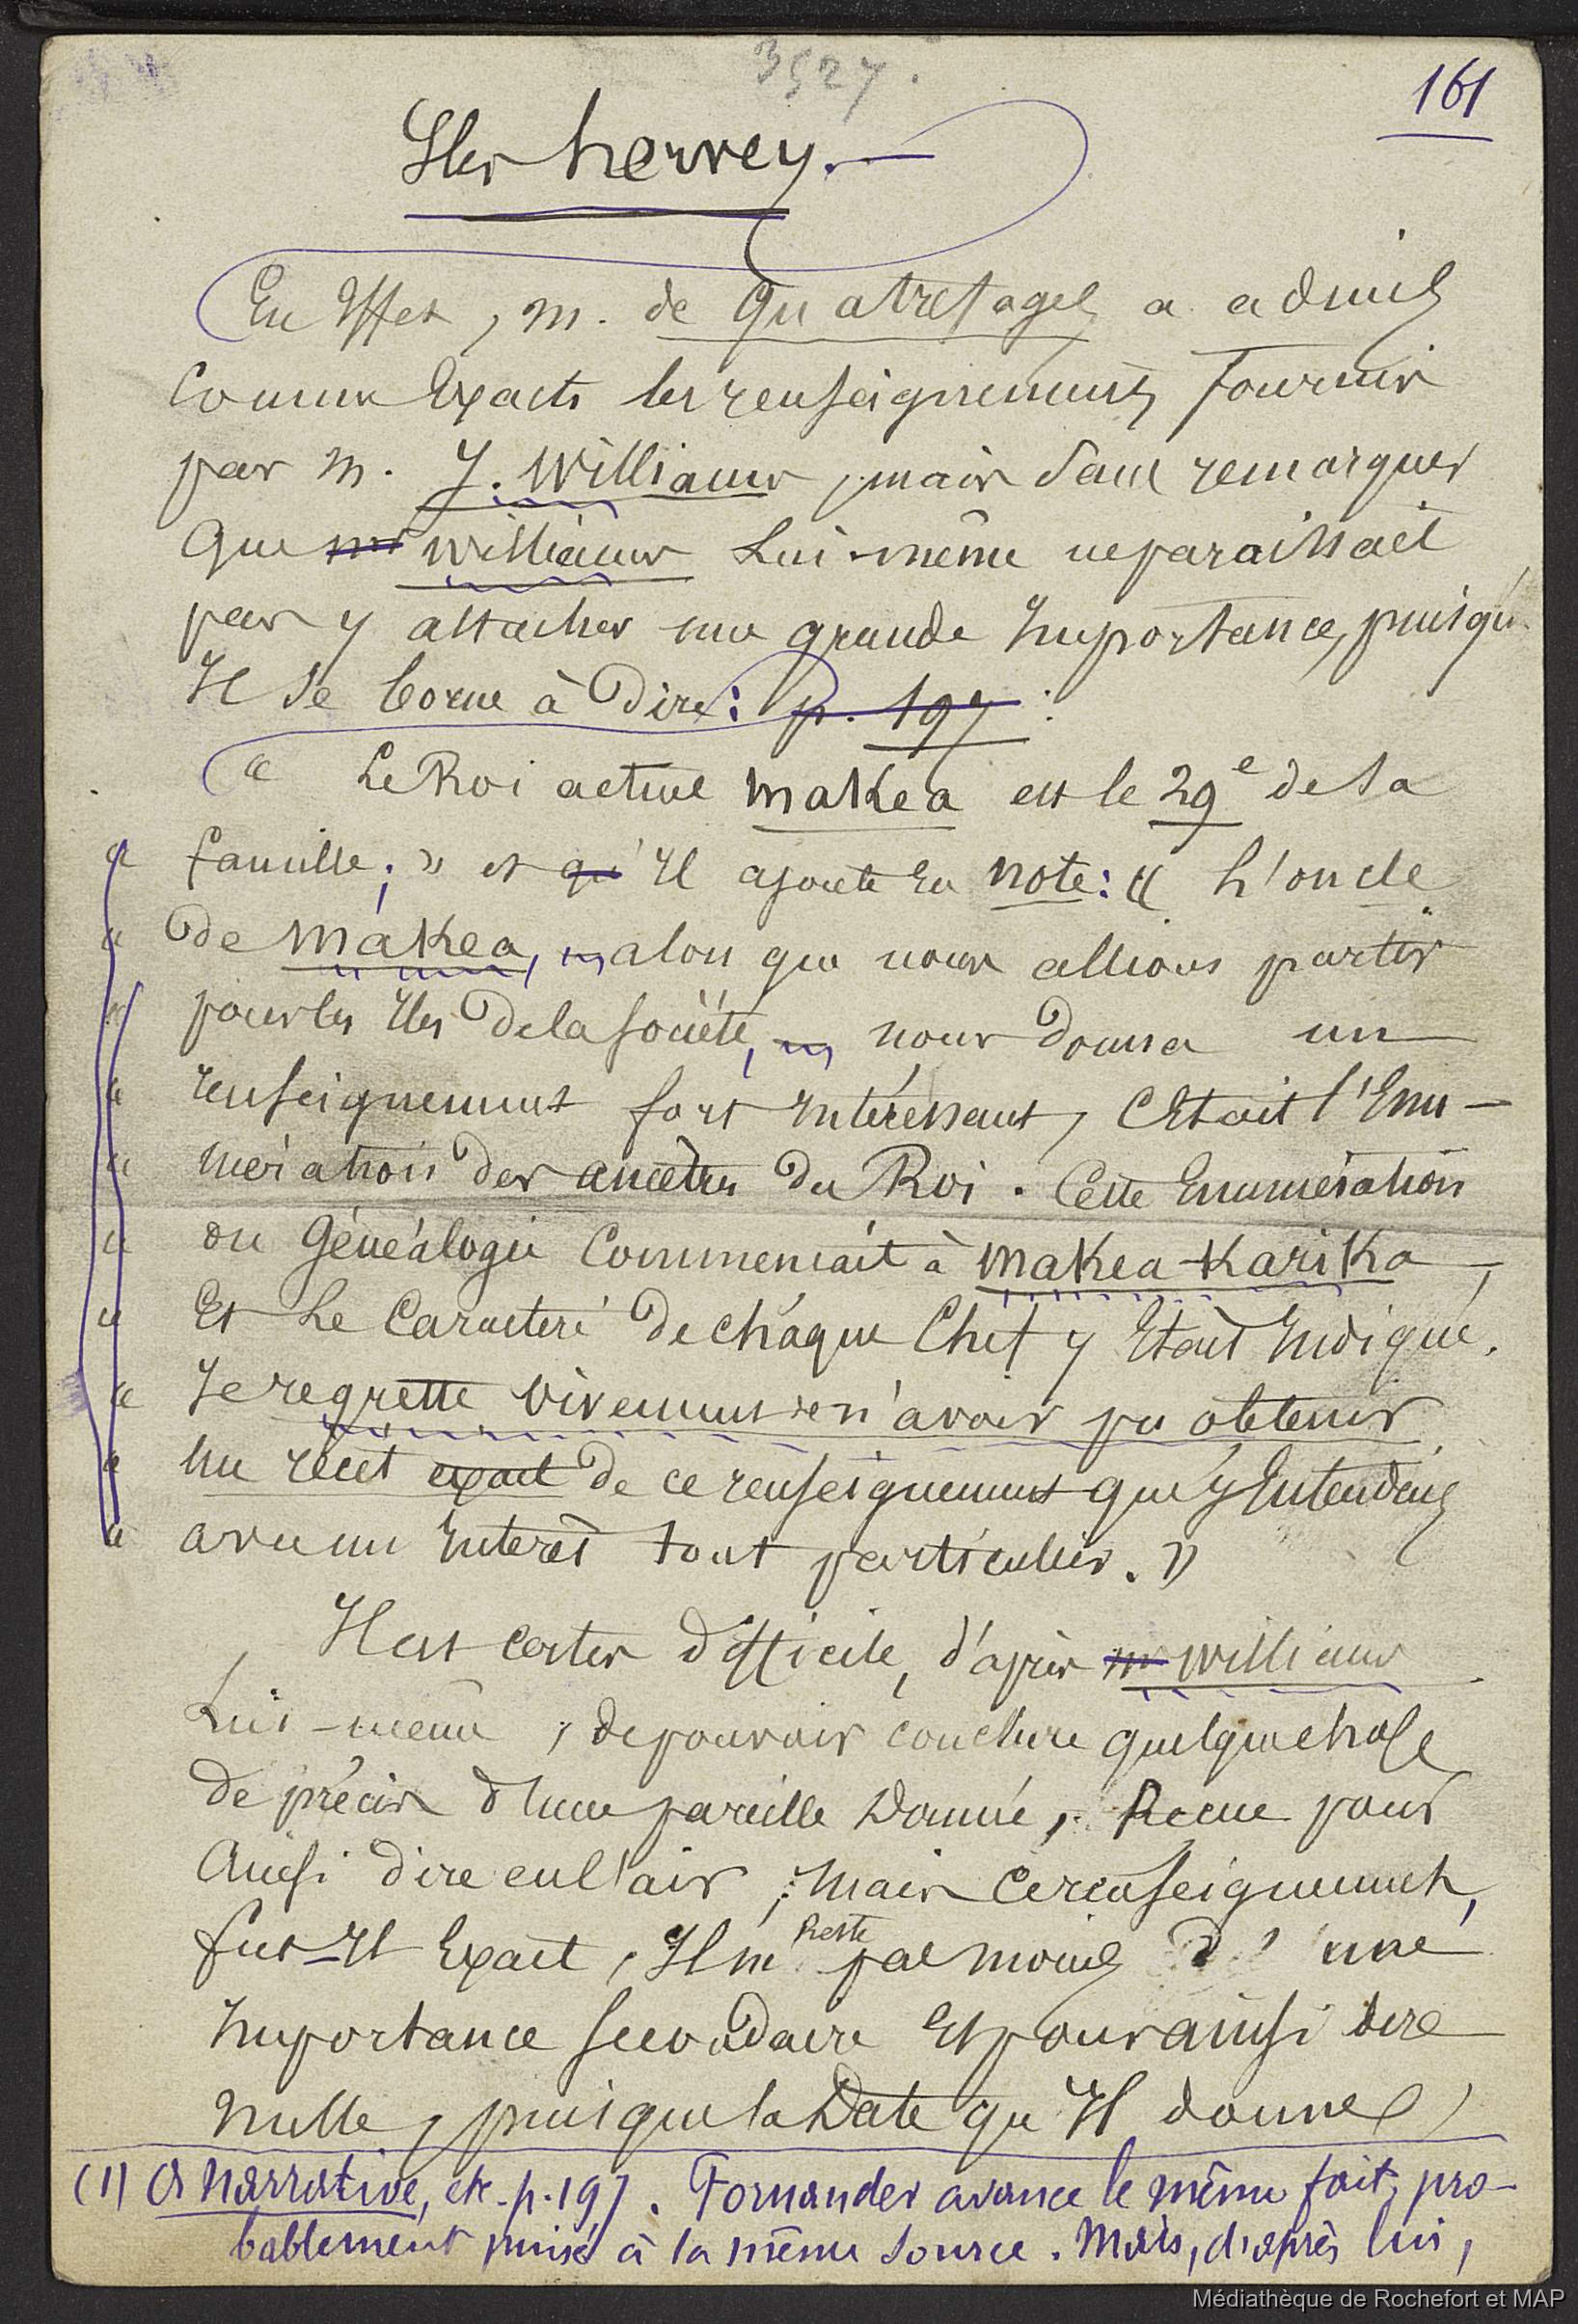 3527.
161
Iles hervey. —
En Effet, m. de Quatrefages a admis
Comme Exacts les renseignements fournis
par m. J. Williams, mais sans remarquer
que mr Williams Lui-même ne paraissait
pas y attacher une grande Importance, puisqu'
Il se borne à Dire : p. 197 :
« Le Roi actuel Makea est le 29e de sa
« famille ; » et qu'Il ajoute En note : « L'oncle
« De Makea, alors que nous allions partir
« pour les Iles De la Société, nous Donna un
« renseignement fort Intéressant, C'Etait l'Enu-
« mération des ancêtres Du Roi. Cette Enumération
« ou Généalogie Commençait à Makea-Karika,
« Et Le Caractère De chaque Chef y Etait Indiqué.
« Je regrette vivement de n'avoir pu obtenir
« un récit exact De ce renseignement que j'Entendais
« avec un Intérêt tout particulier. »
Il est certes Difficile, d'après m Williams
Lui-même, de pouvoir conclure quelque chose
De précis d'une pareille Donnée, Reçue pour
Ainsi dire en l'air ; mais Ce renseignement,
fut-Il Exact, Il n'
Reste
pas moins d'une
Importance Secondaire Et pour ainsi dire
nulle, puisque la Date qu'Il donne,
(1) A Narrative, etc. p. 197. Fornander avance le même fait, pro-
bablement puisé à la même source. Mais, d'après lui,
Médiathèque de Rochefort et MAP